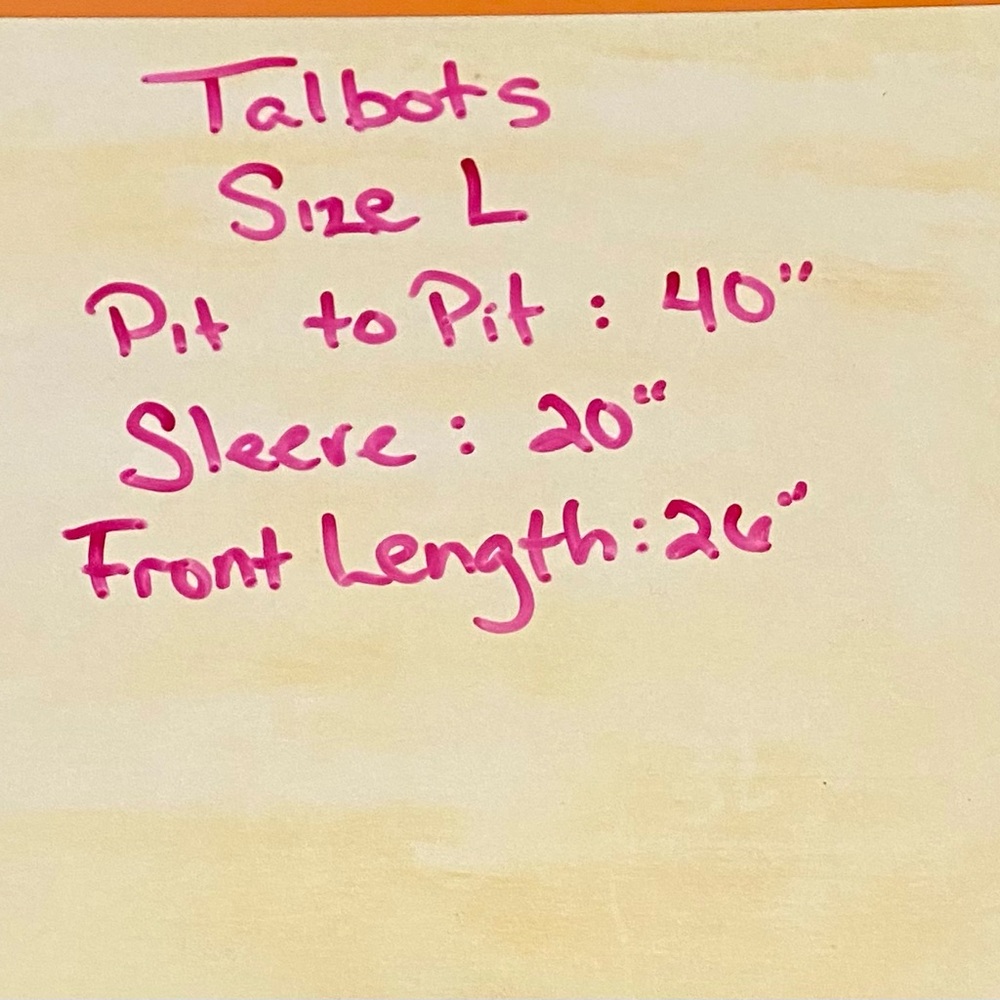 Talbots
Size L
Pit to Pit : 40"
Sleeve : 20"
Front Length : 26"